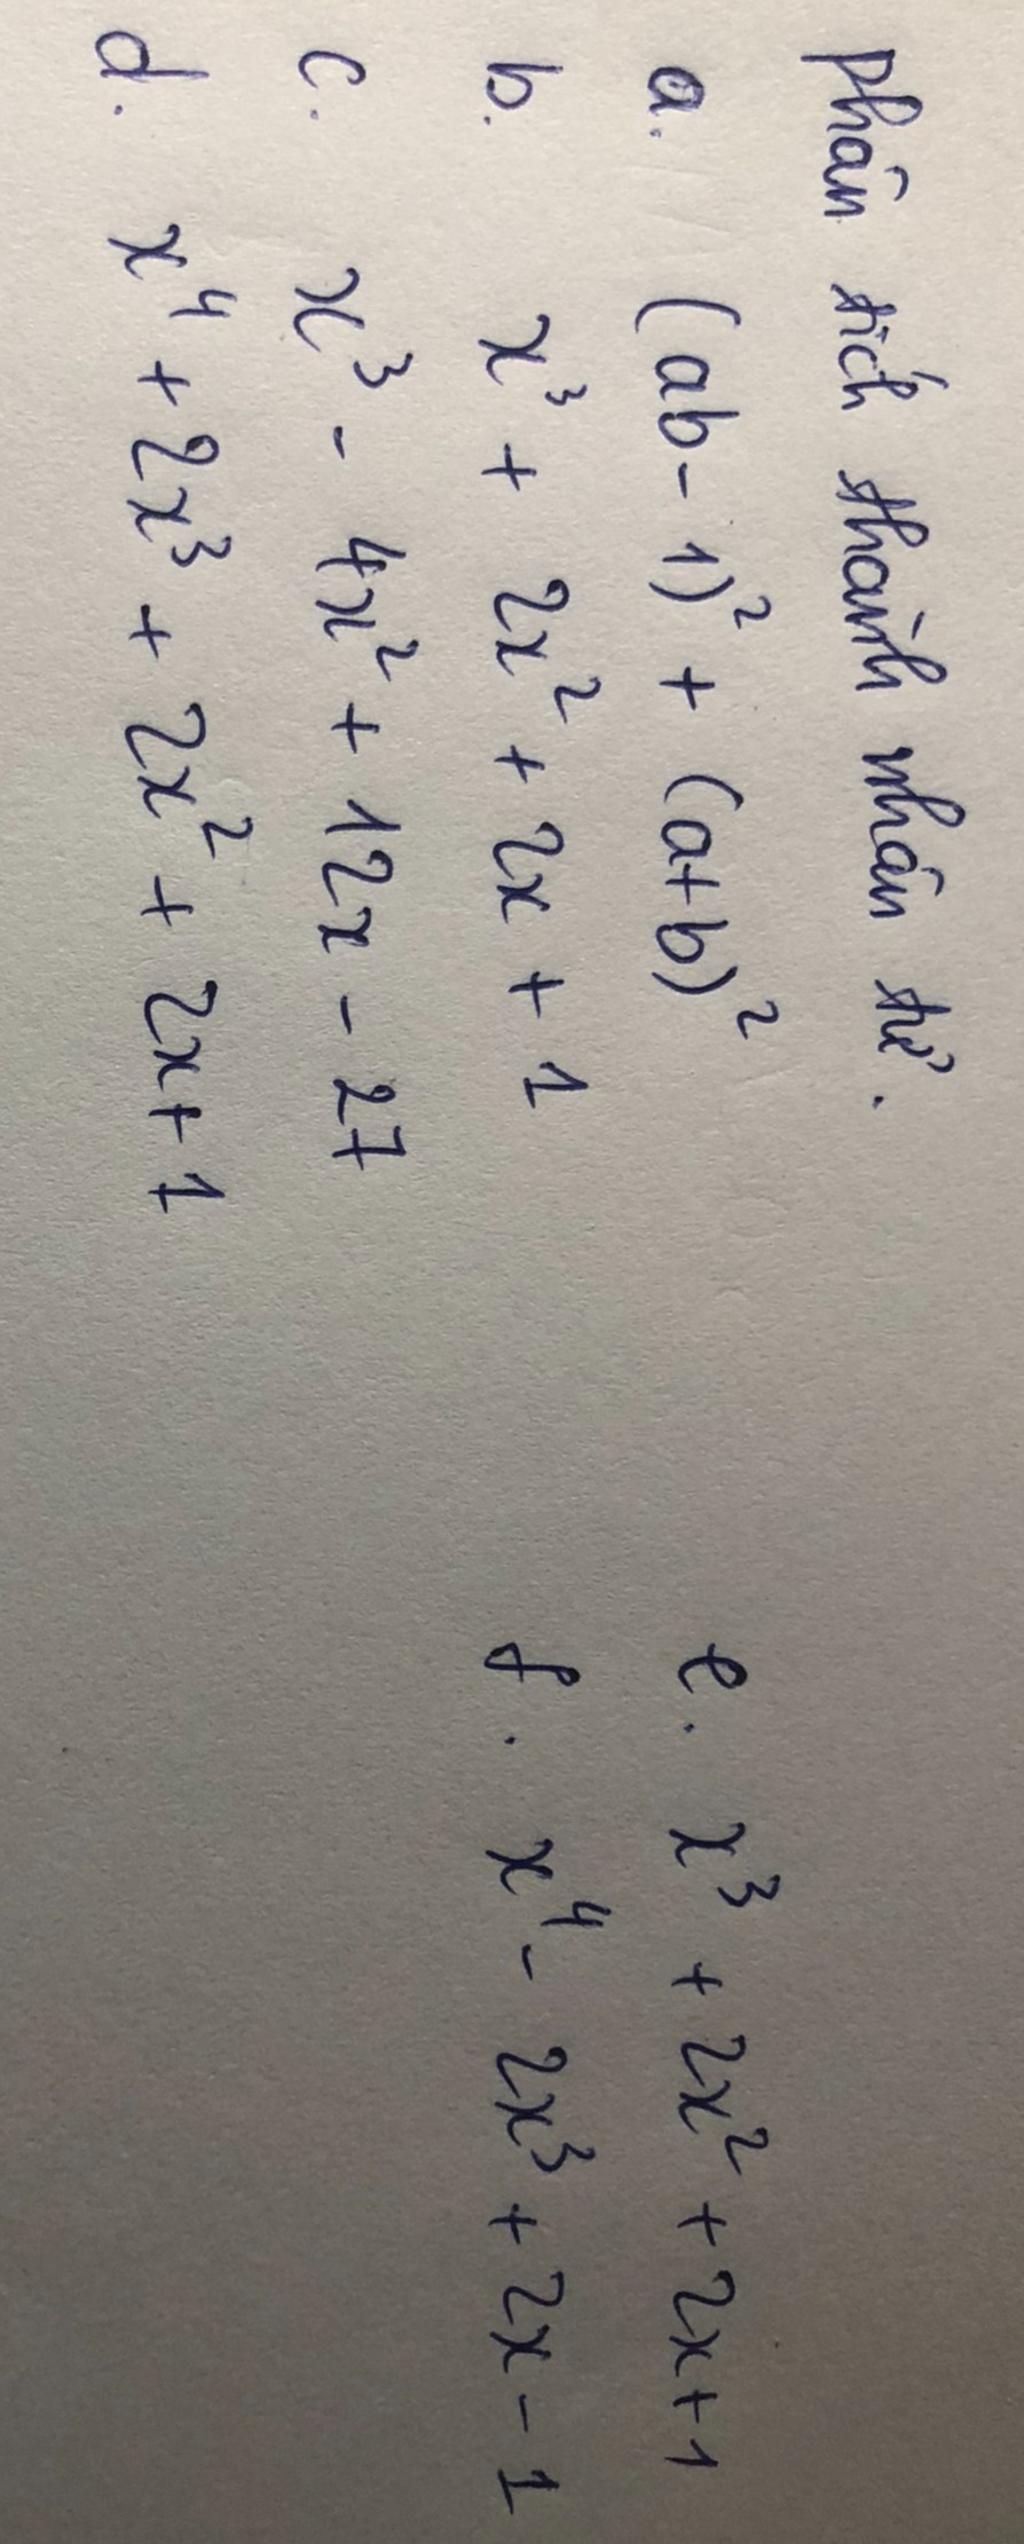 Phân tích thành nhân tử.
a. (ab - 1)² + (a+b)²
b. x³ + 2x² + 2x + 1
c. x³ - 4x² + 12x - 27
d. x⁴ + 2x³ + 2x² + 2x + 1
e. x³ + 2x² + 2x + 1
f. x⁴ - 2x³ + 2x - 1